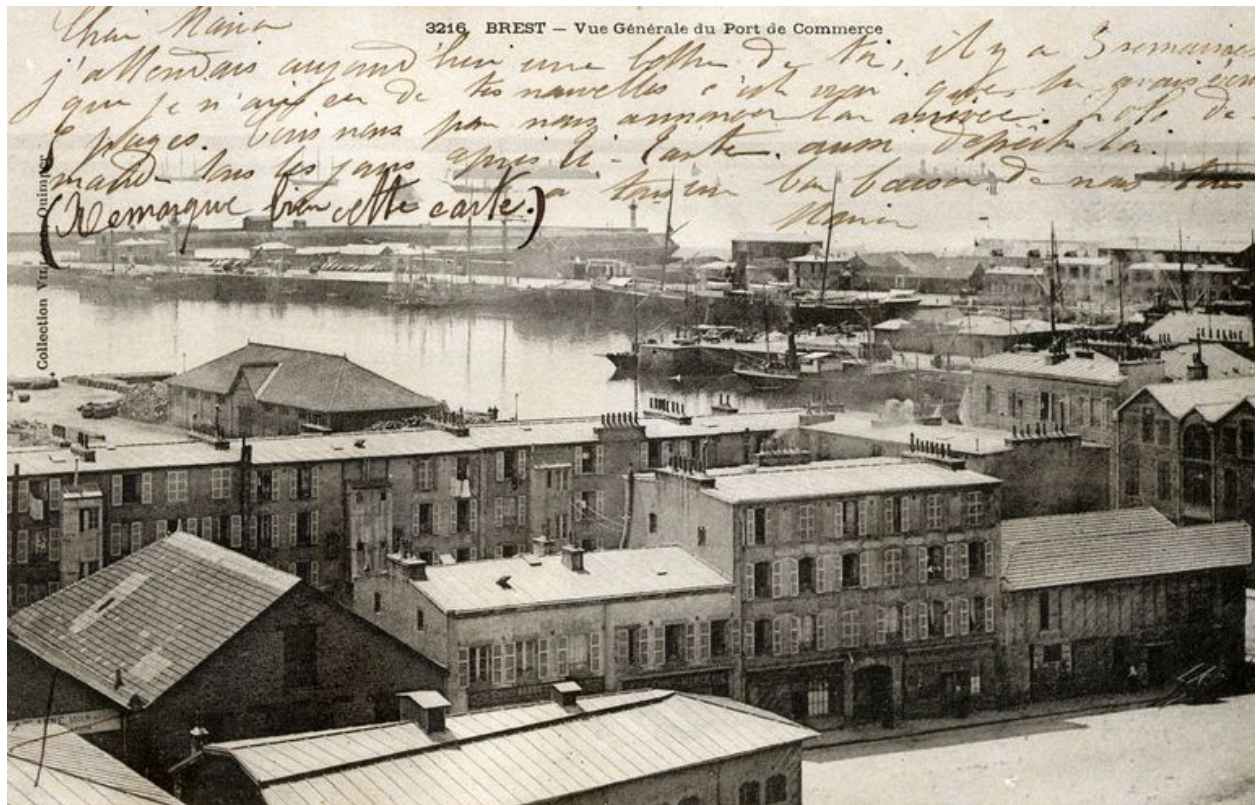 3216 BREST — Vue Générale du Port de Commerce
Maria
j'attendais aujourd'hui une lettre de toi, il y a 3 semaines
que je n'ai eu de tes nouvelles c'est vrai que tu avais
pages. nous pour nous annoncer ton arrivée. de
mande tous les jours après Tante. aussi dépêche toi.
a tous un bon baiser de nous tous
(Remarque bien cette carte.)
Maria
Collection Quimper